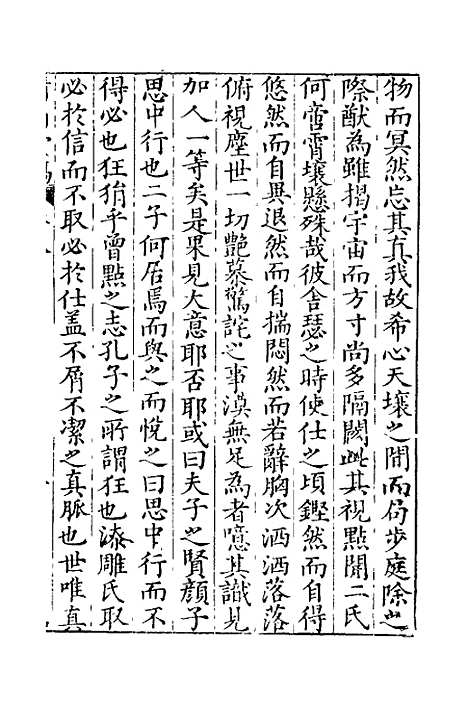 物而冥然忘其真我故希心天壤之間而局步庭除之
際猷為雖揭宇宙而方寸尚多隔閡此其視點開二氏
何啻霄壤懸殊哉彼舍瑟之時使仕之頃鏗然而自得
悠然而自異退然而自揣悶然而若辭胸次洒洒落落
俯視塵世一切艷慕驚詫之事漠無足為者噫其識見
加人一等矣是果見大意耶否耶或曰夫子之賢顏子
思中行也二子何居焉而與之而悅之曰思中行而不
得必也狂狷乎曾點之志孔子之所謂狂也漆雕氏取
必於信而不取必於仕蓋不屑不潔之真脈也世唯真